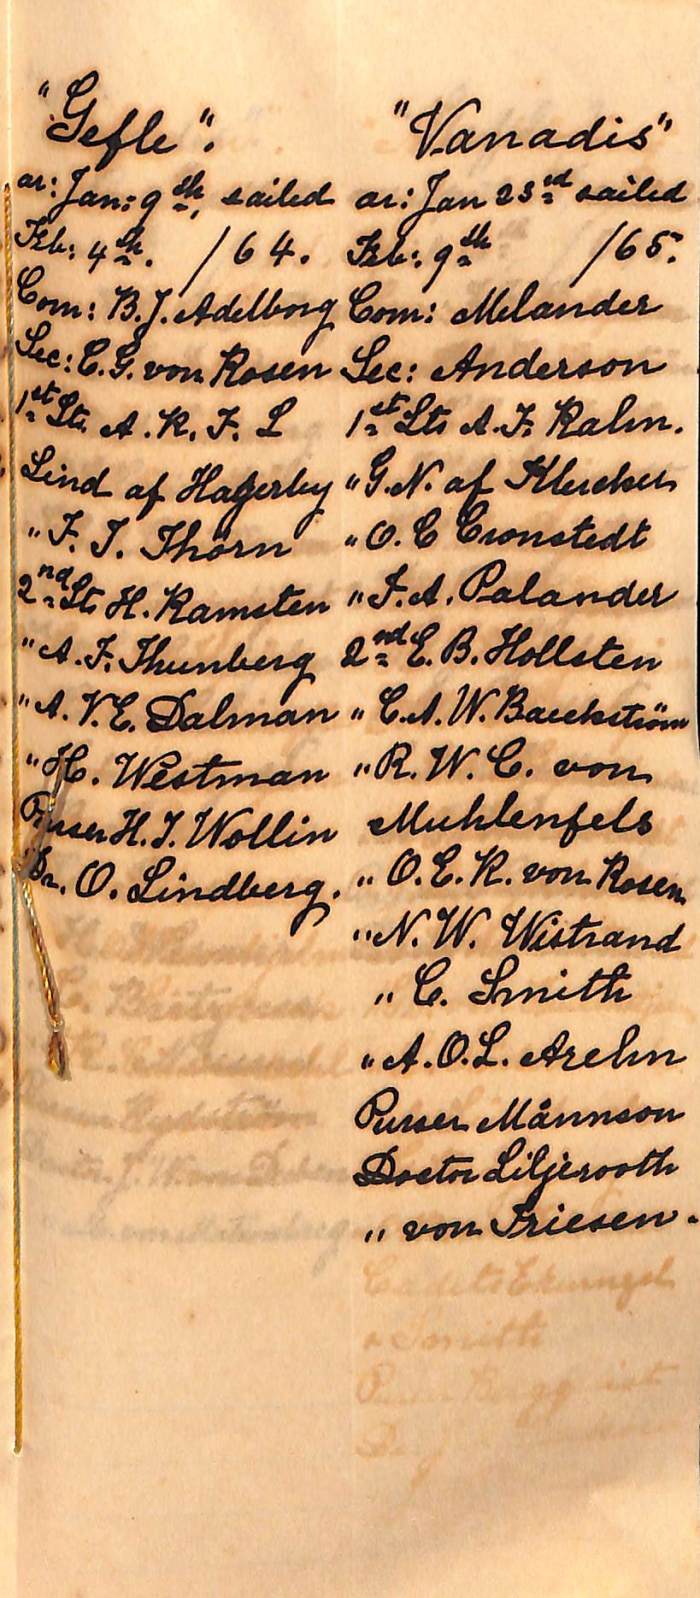 "Gefle".
ar: Jan: 9th, sailed
Feb: 4th. /64.
Com: B. J. Adelborg
Sec: C. G. von Rosen
1st Lts. A. R. F. L
Lind af Hagerby
" F. J. Thörn
2nd Lts H. Ramsten
" A. F. Thunberg
" A. V. E. Dalman
" H. Westman
Purser H. J. Wollin
Dr. O. Lindberg.
"Vanadis"
ar: Jan 23rd sailed
Feb: 9th /65.
Com: Melander
Sec: Anderson
1st Lts A. F. Kalm.
" G. N. af Klercker
" O. C Cronstedt
" F. A. Palander
2nd E. B. Hollsten
" C. A. W. Baeckström
" R. W. C. von
Muhlenfels
" O. E. R. von Rosen
" N. W. Wistrand
" C. Smith
" A. O. L. Arehn
Purser Månnson
Doctor Liljerooth
" von Friesen.